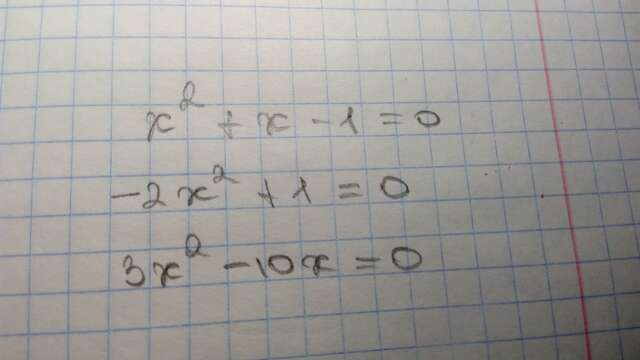 x² + x - 1 = 0
-2x² + 1 = 0
3x² - 10x = 0